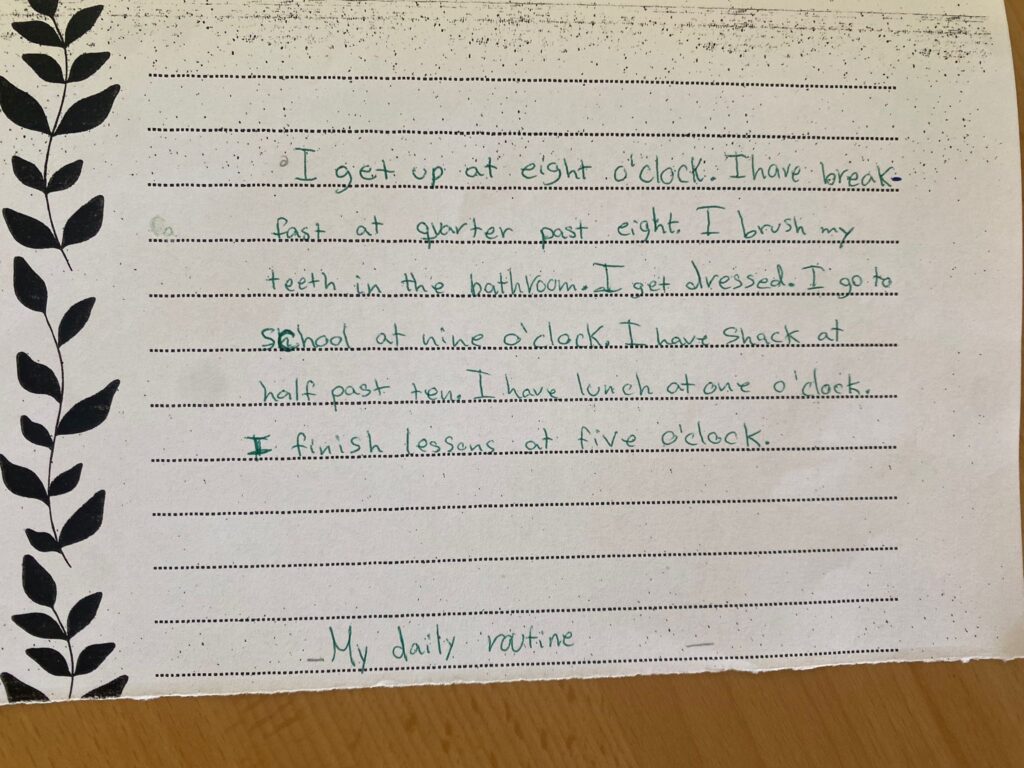 I get up at eight o'clock. I have break-
fast at quarter past eight. I brush my
teeth in the bathroom. I get dressed. I go to
school at nine o'clock. I have snack at
half past ten. I have lunch at one o'clock.
I finish lessons at five o'clock.
My daily routine